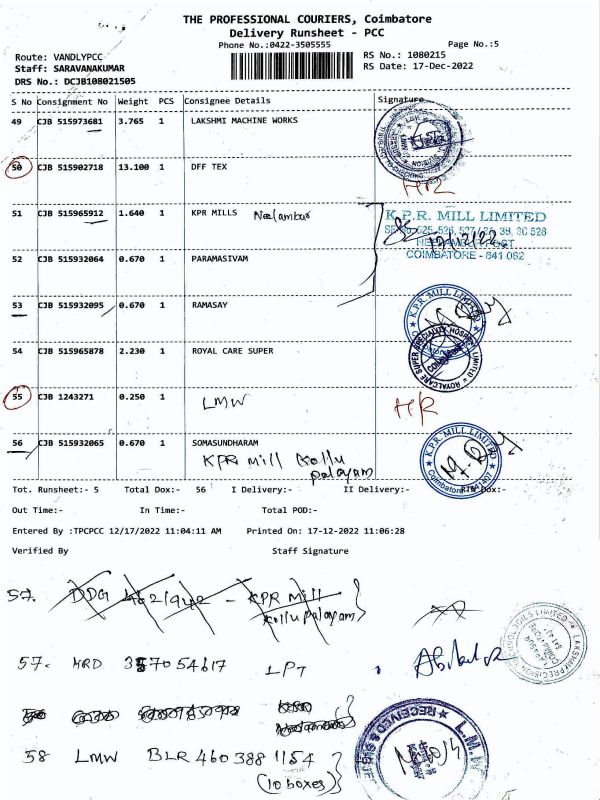 THE PROFESSIONAL COURIERS, Coimbatore
Delivery Runsheet - PCC
Phone No.:0422-3505555
Page No.:5
Route: VANDLYPCC
RS No.: 1080215
Staff: SARAVANAKUMAR
RS Date: 17-Dec-2022
DRS No.: DCJB108021505
S No Consignment No Weight PCS Consignee Details Signature
49 CJB 515973681 3.765 1 LAKSHMI MACHINE WORKS
50 CJB 515902718 13.100 1 DFF TEX HR
51 CJB 515965912 1.640 1 KPR MILLS Neelambur
K.P.R. MILL LIMITED
COIMBATORE - 641 062
52 CJB 515932064 0.670 1 PARAMASIVAM
53 CJB 515932095 0.670 1 RAMASAY
K.P.R. MILL LIMITED
54 CJB 515965878 2.230 1 ROYAL CARE SUPER
ROYALCARE SUPER SPECIALITY HOSPITAL LIMITED
55 CJB 1243271 0.250 1 LMW HR
56 CJB 515932065 0.670 1 SOMASUNDHARAM
KPR Mill Kollu
palayam
K.P.R. MILL LIMITED
Tot. Runsheet:- 5 Total Dox:- 56 I Delivery:- II Delivery:- Dox:-
Out Time:- In Time:- Total POD:-
Entered By :TPCPCC 12/17/2022 11:04:11 AM Printed On: 17-12-2022 11:06:28
Verified By Staff Signature
57. DDG - KPR Mill
Kollupalayam
57. HRD LPT
LAKSHMI PRECISION TOOLS LIMITED
58 LMW BLR 460 388 1154
(10 boxes)
L.M.W
RECEIVED &